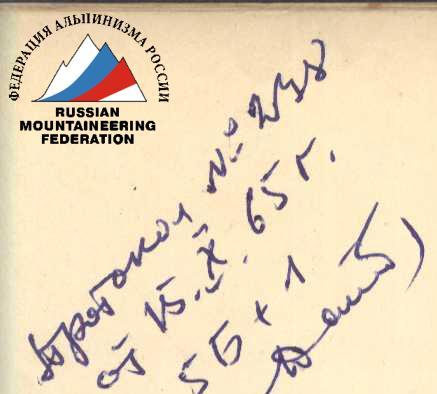 ФЕДЕРАЦИЯ АЛЬПИНИЗМА РОССИИ
RUSSIAN
MOUNTAINEERING
FEDERATION
Протокол № 238
от 15.X.65 г.
5Б + 1